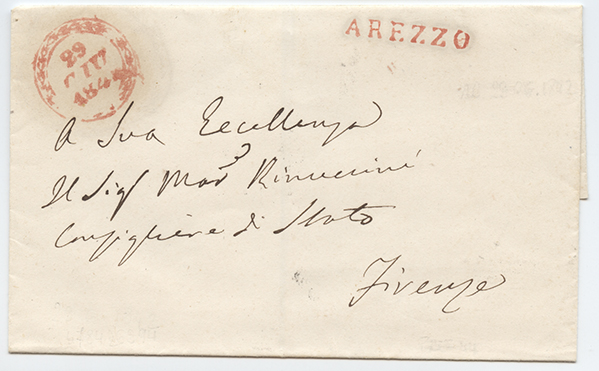 AREZZO
29
GIU
A Sua Eccellenza
Il Sigr Marse Rinuccini
Consigliere di Stato
Firenze